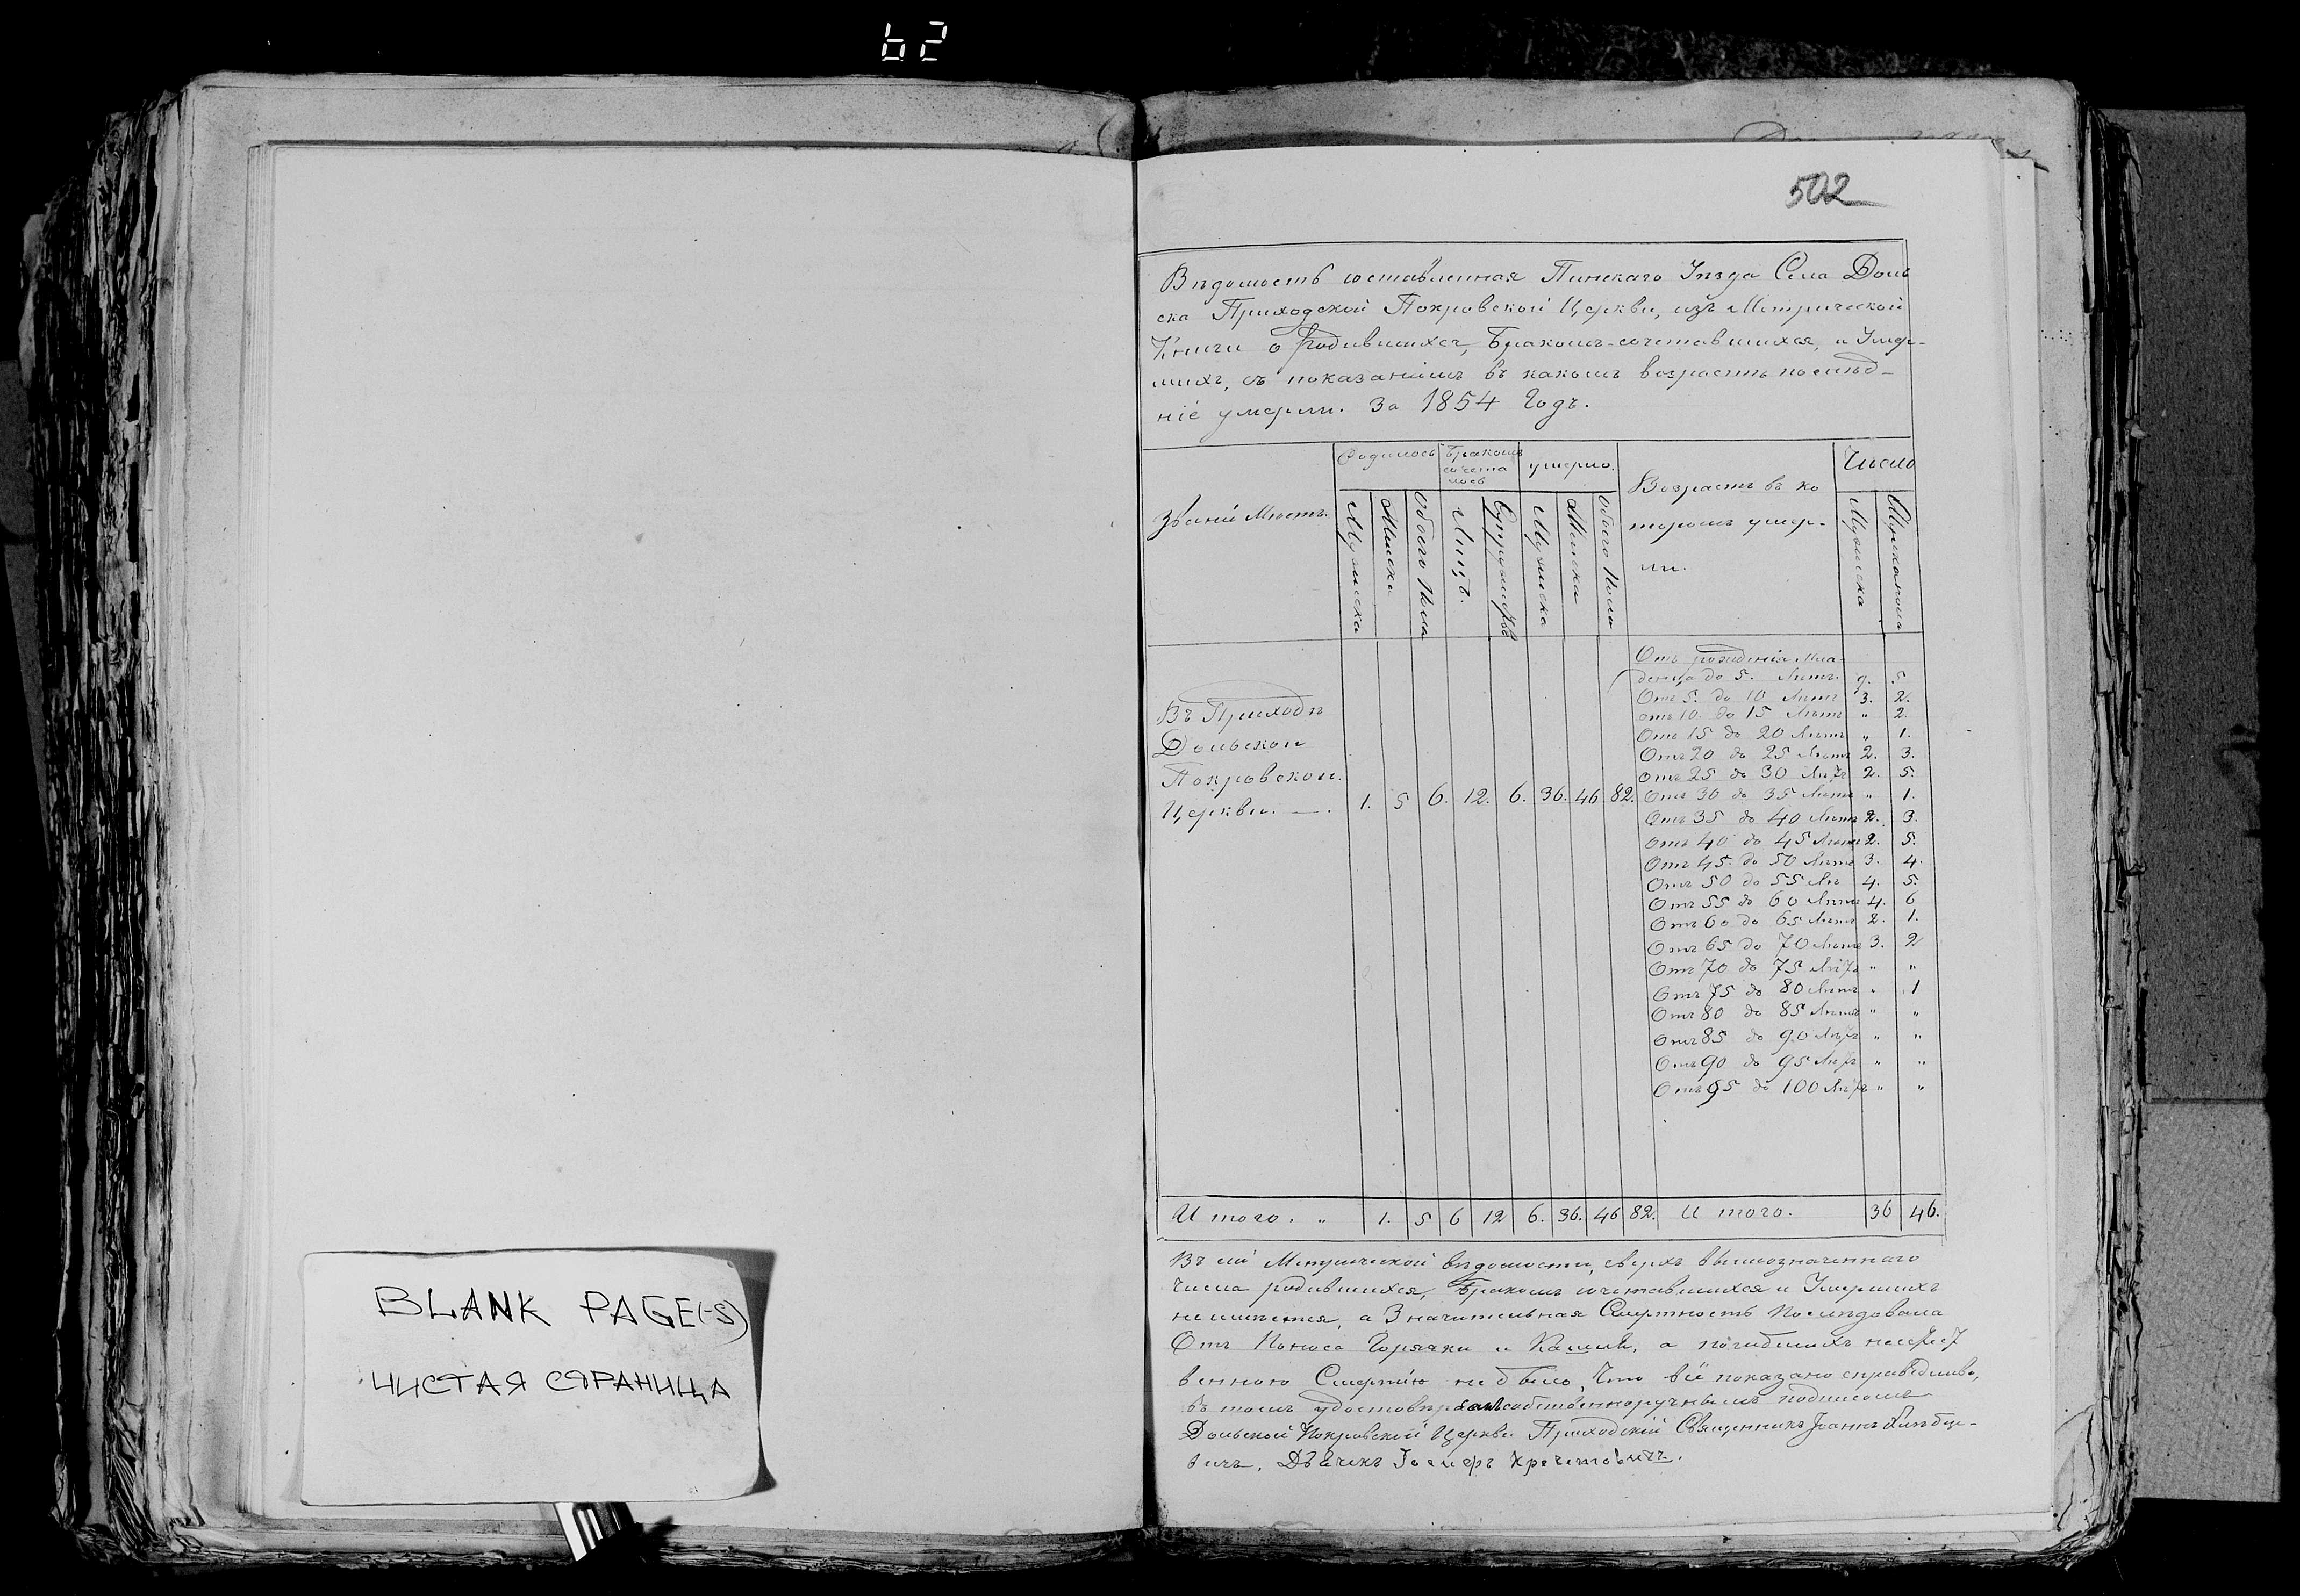 62
502
Вѣдомость составленная Пинскаго Уѣзда Села Доль
ска Приходской Покровской Церкви, изъ Метрической
Книги о Родившихся, Бракомъ-сочетавшихся, и Умер-
шихъ, съ показаніемъ въ какомъ возрастѣ послѣд-
ніе умерли. За 1854 Годъ.
Званій Мѣстъ. Родилось Бракомъ сочета лось умерло. Возрастъ въ ко торомъ умер- ли. Число
Мужеска Женска Обоего Пола Лицъ. Супружествъ Мужеска Женска Обоего Пола Мужеска
Отъ рожденія Мла-
денца до 5. Лѣтъ. 9. 5.
Отъ 5. до 10 Лѣтъ 3. 2.
отъ 10. до 15 Лѣтъ " 2.
Отъ 15 до 20 Лѣтъ " 1.
Отъ 20 до 25 Лѣтъ 2. 3.
Отъ 25 до 30 Лѣтъ 2. 5.
Отъ 30 до 35 Лѣтъ " 1.
Отъ 35 до 40 Лѣтъ 2. 3.
Отъ 40 до 45 Лѣтъ 2. 5.
Отъ 45. до 50 Лѣтъ 3. 4.
Отъ 50 до 55 Лѣ 4. 5.
Отъ 55 до 60 Лѣтъ 4. 6
Отъ 60 до 65 Лѣтъ 2. 1.
Отъ 65 до 70 Лѣтъ 3. 2
Отъ 70 до 75 Лѣтъ " "
Отъ 75 до 80 Лѣтъ " 1
Отъ 80 до 85 Лѣтъ " "
Отъ 85 до 90 Лѣтъ " "
Отъ 90 до 95 Лѣтъ " "
Отъ 95 до 100 Лѣтъ " "
Въ Приходѣ
Дольской
Покровской
Церкви. — 1. 5 6. 12. 6. 36. 46 82.
Итого. " 1. 5 6 12 6. 36. 46 82. Итого. 36 46.
Въ сей Метрической вѣдомости, сверхъ вышеозначеннаго
числа родившихся, Бракомъ сочетавшихся и Умершихъ
неимѣется, а Значительная Смертность Послѣдовала
Отъ Поноса Горячки и Кашля, а погибшихъ неестест
венною Смертію небыло, Что все показано справедливо,
въ томъ удостовѣряемъ собственноручнымъ подписомъ
Дольской Покровской Церкви Приходскій Священникъ Іоаннъ Хлѣбце-
вичъ. Дьячекъ Іосифъ Кречетовичъ.
BLANK PAGE(-S)
ЧИСТАЯ СТРАНИЦА